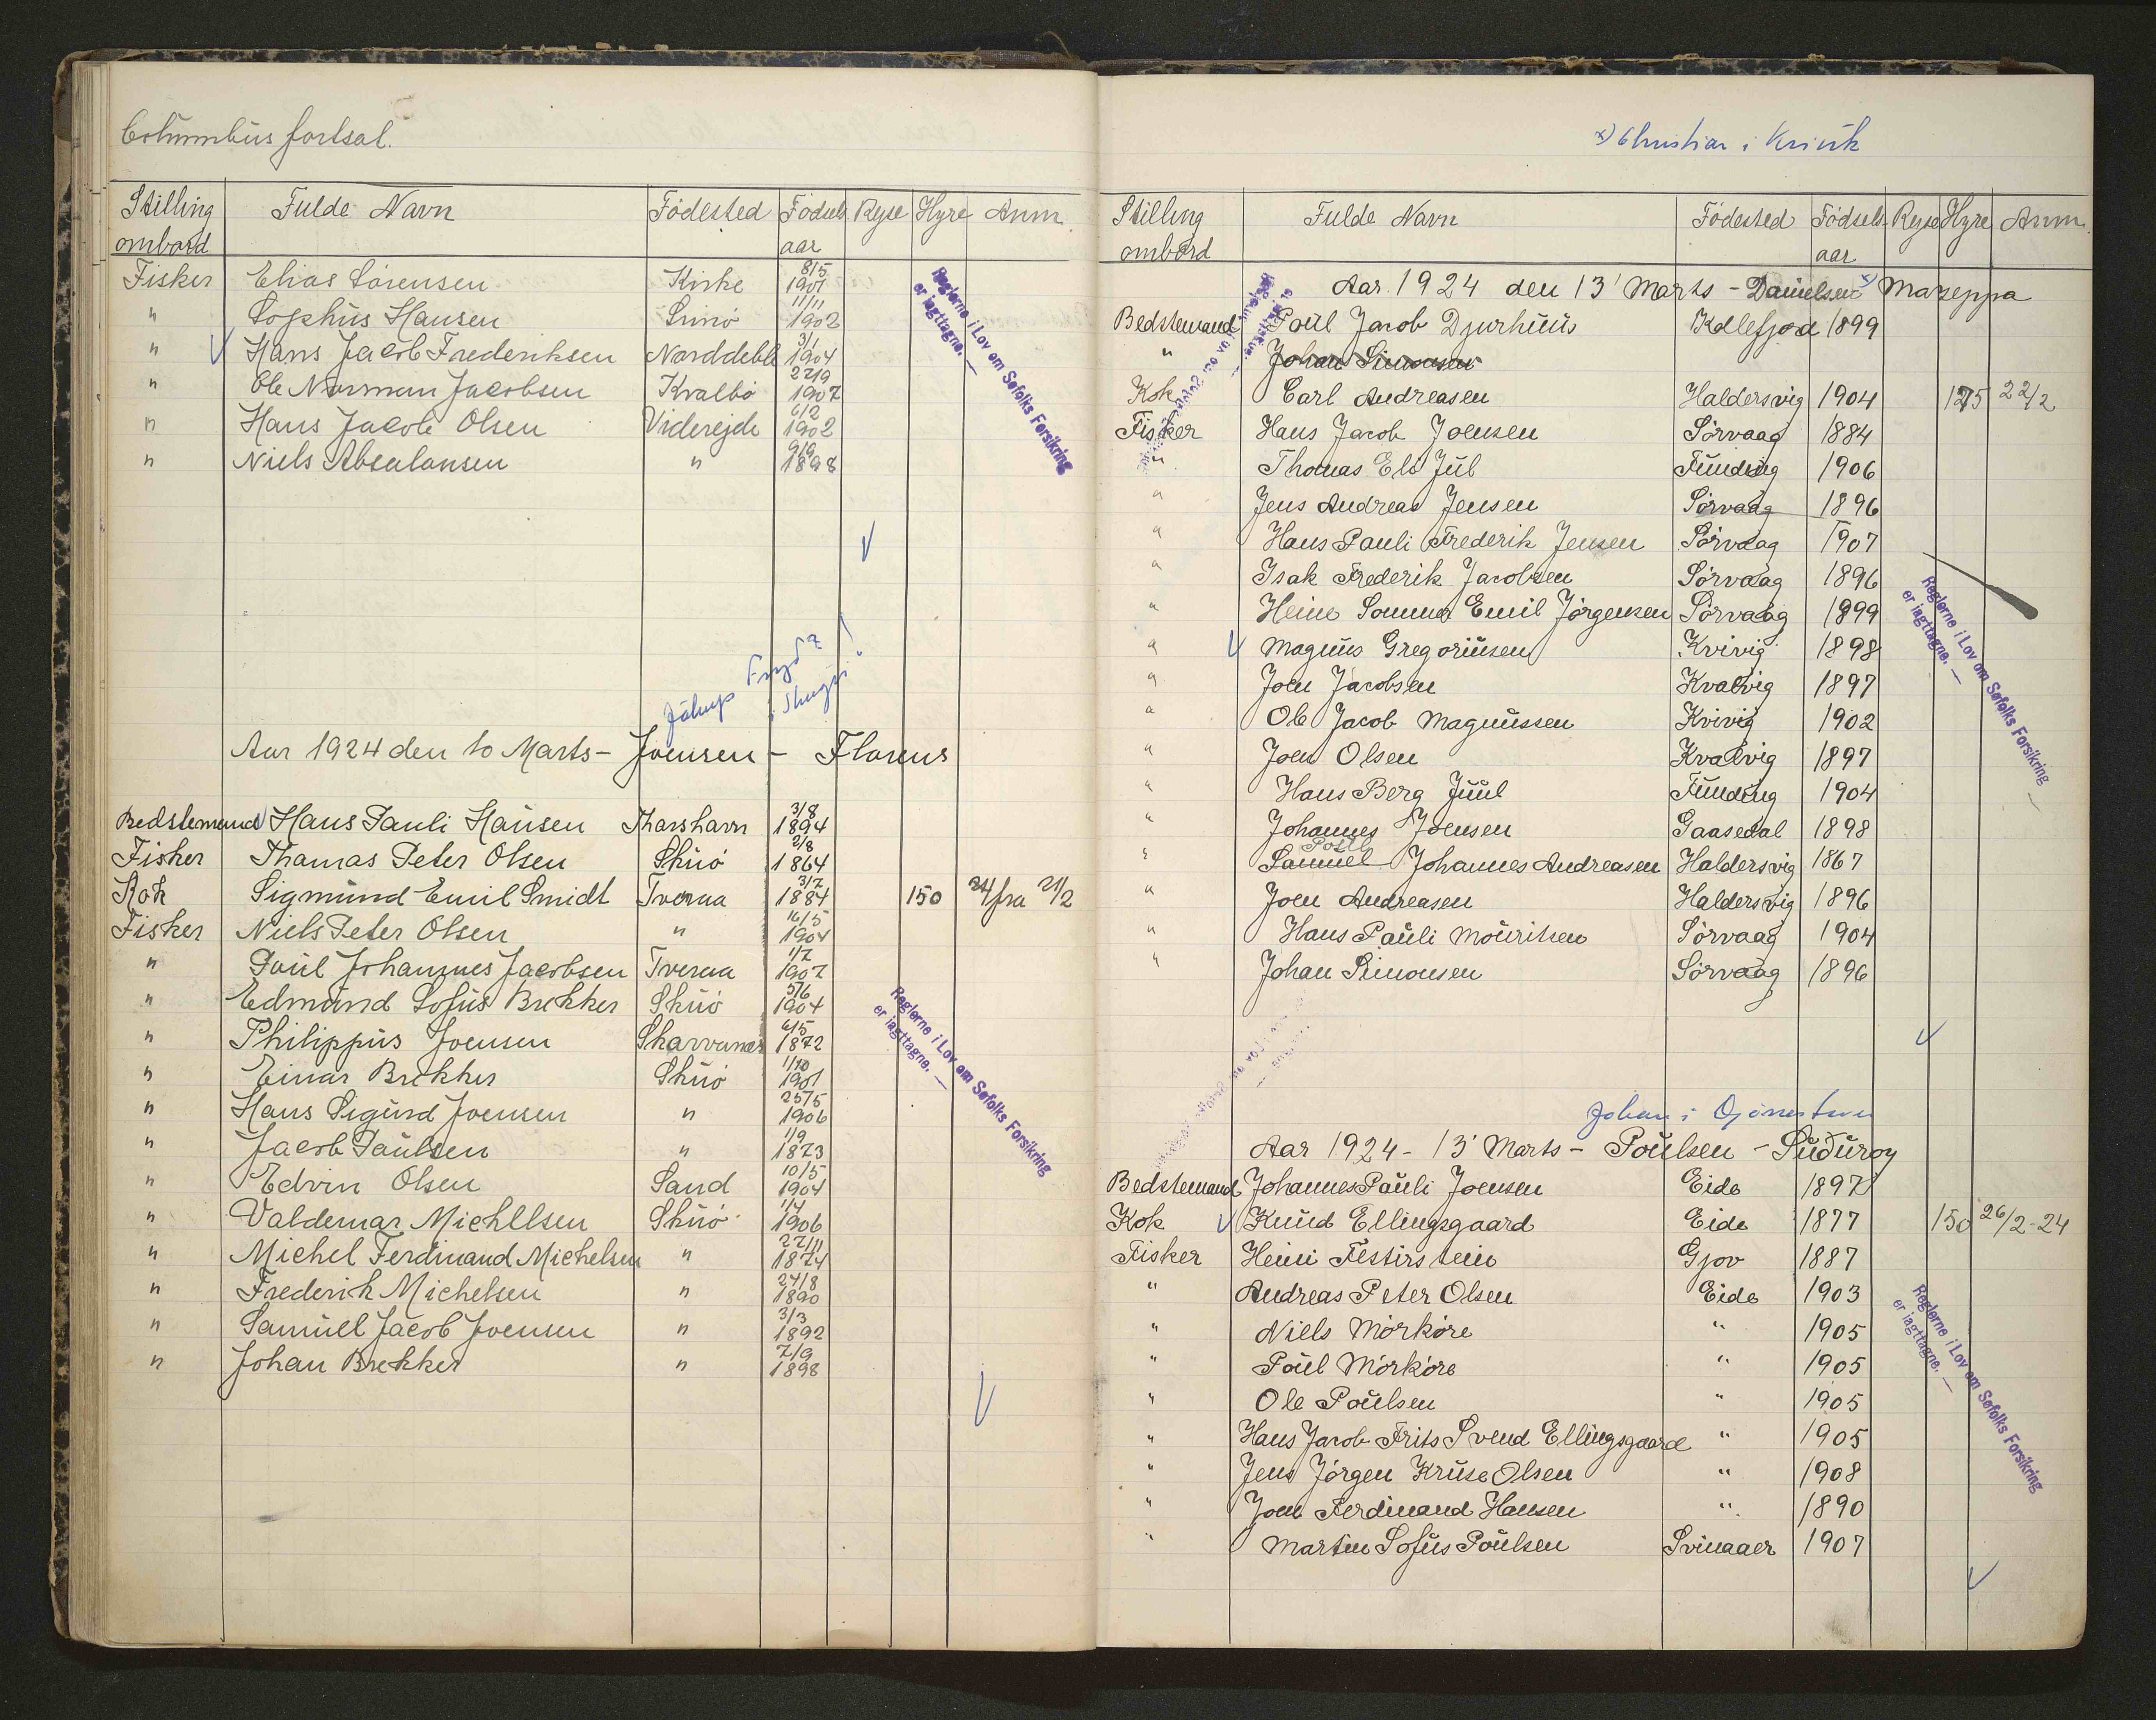 Columbus fortsat.
Stilling ombord Fulde Navn Födested Födsels aar Rejse Hyre Anm.
Fisker Elias Sörensen Kirke 8/5 1901
" Sophus Hansen Svinö 11/11 1902
" Hans Jacob Frederiksen Norddeble 3/1 1904
" Ole Norman Jacobsen Kvalbö 27/9 1907
" Hans Jacob Olsen Viderejde 6/2 1902
" Niels Absalonsen " 9/9 1898
Reglerne i Lov om Søfolks Forsikring
er iagttagne. —
Jákup
Aar 1924 den 10 Marts - Joensen - Florens
Bedstemand Hans Pauli Hansen Thorshavn 3/8 1894
Fisker Thomas Peter Olsen Skúö 2/8 1864
Kok Sigmund Emil Smidt Tveraa 3/7 1884 150 24/fra 21/2
Fisker Niels Peter Olsen " 16/5 1904
" Poul Johannes Jacobsen Tveraa 1/7 1907
" Edmund Sofus Brekker Skúö 5/6 1904
" Philippus Joensen Skarvanes 6/5 1872
" Einar Brekker Skúö 1/10 1901
" Hans Sigurd Joensen " 25/5 1906
" Jacob Paulsen " 1/9 1873
" Edvin Olsen Sand 10/5 1904
" Valdemar Michelsen Skúö 1/4 1906
" Michel Ferdinand Michelsen " 22/11 1874
" Frederik Michelsen " 24/8 1890
" Samuel Jacob Joensen " 3/3 1892
" Johan Brekker " 7/9 1898
Reglerne i Lov om Søfolks Forsikring
er iagttagne. —
x) Christian i
Stilling ombord Fulde Navn Födested Födsels- aar Rejse Hyre Anm.
Aar 1924 den 13' Marts - Danielsen x) Mazeppa
Bedstemand Poul Jacob Djurhuus Kollefjod 1899
" Johan Simonsen
Kok Carl Andreasen Haldersvig 1904 175 22/2
Fisker Hans Jacob Joensen Sörvaag 1884
" Thomas Eli Jul Funding 1906
" Jens Andreas Jensen Sörvaag 1896
" Hans Pauli Frederik Jensen Sörvaag 1907
" Isak Frederik Jacobsen Sörvaag 1896
" Heine Sommer Emil Jörgensen Sörvaag 1899
" Magnus Gregoriusen Kvivig 1898
" Joen Jacobsen Kvalvig 1897
" Ole Jacob Magnussen Kvivig 1902
" Joen Olsen Kvalvig 1897
" Hans Berg Juul Funding 1904
" Johannes Joensen Gaasedal 1898
Poul
" Samuel Johannes Andreasen Haldersvig 1867
" Joen Andreasen Haldersvig 1896
" Hans Pauli Mouritsen Sörvaag 1904
" Johan Simonsen Sörvaag 1896
Reglerne i Lov om Søfolks Forsikring
er iagttagne. —
Johan i
Aar 1924 - 13' Marts - Poulsen - Suduroy
Bedstemand Johannes Pauli Joensen Eide 1897
Kok Knud Ellingsgaard Eide 1877 150 26/2-24
Fisker Heini Festirstein Gjov 1887
" Andreas Peter Olsen Eide 1903
" Niels Mörköre " 1905
" Poul Mörköre " 1905
" Ole Poulsen " 1905
" Hans Jacob Frits Svend Ellingsgaard " 1905
" Jens Jörgen Kruse Olsen " 1908
" Joen Ferdinand Hansen " 1890
" Martin Sofus Poulsen Svinaaer 1907
Reglerne i Lov om Søfolks Forsikring
er iagttagne. —